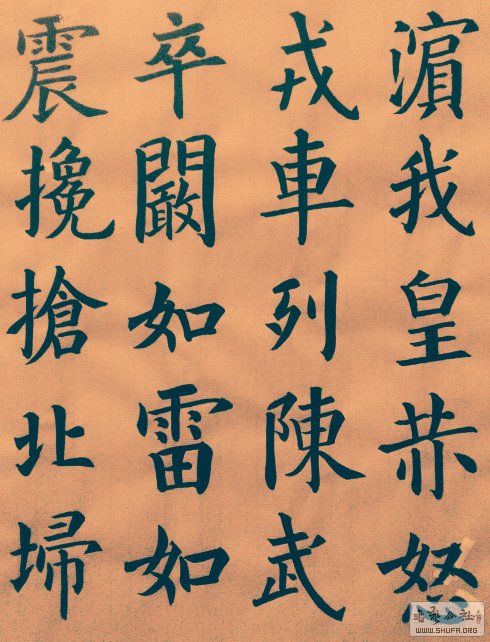 濵我皇恭怒
戎車列陳武
卒闞如雷如
震攙搶北埽
北艺公社
WWW.SHUFA.ORG